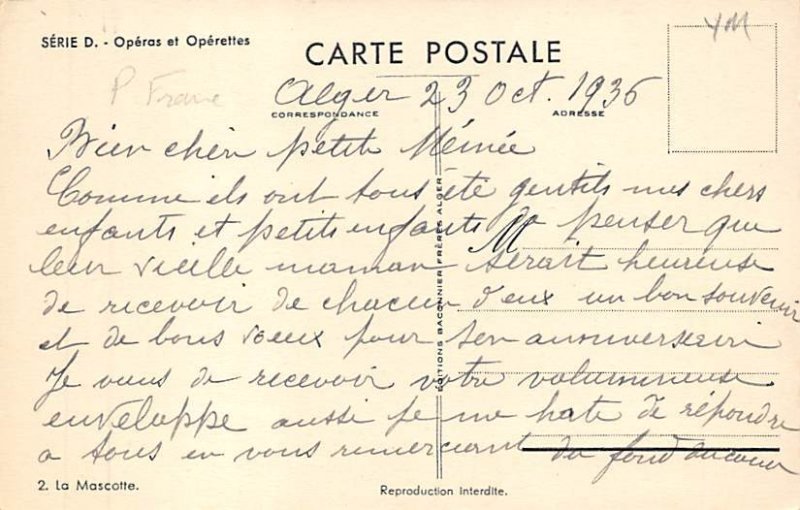 SÉRIE D. - Opéras et Opérettes
CARTE POSTALE
P. Franc
Alger 23 Oct. 1936
CORRESPONDANCE
ADRESSE
Bien cher petit Mémée
Comme ils ont tous été gentils mes chers
enfants et petits enfants de penser que
leur vieille maman serait heureuse
de recevoir de chacun d'eux un bon souvenir
et de bons voeux pour son anniversaire
Je viens de recevoir votre volumineuse
enveloppe aussi je me hate de répondre
a tous en vous remerciant du fond du coeur
EDITIONS BACONNIER FRÈRES ALGER
2. La Mascotte.
Reproduction interdite.